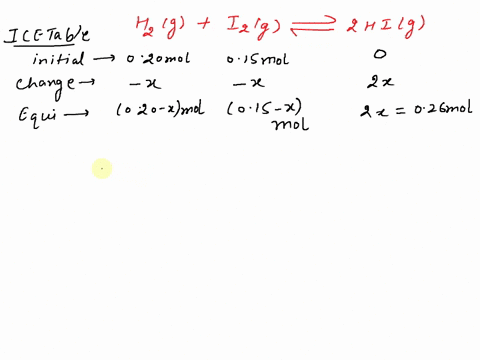 ICE Table H₂(g) + I₂(g) ⇌ 2HI(g)
initial → 0.20mol 0.15mol 0
Change → -x -x 2x
Equi → (0.20-x)mol (0.15-x) mol 2x = 0.26mol